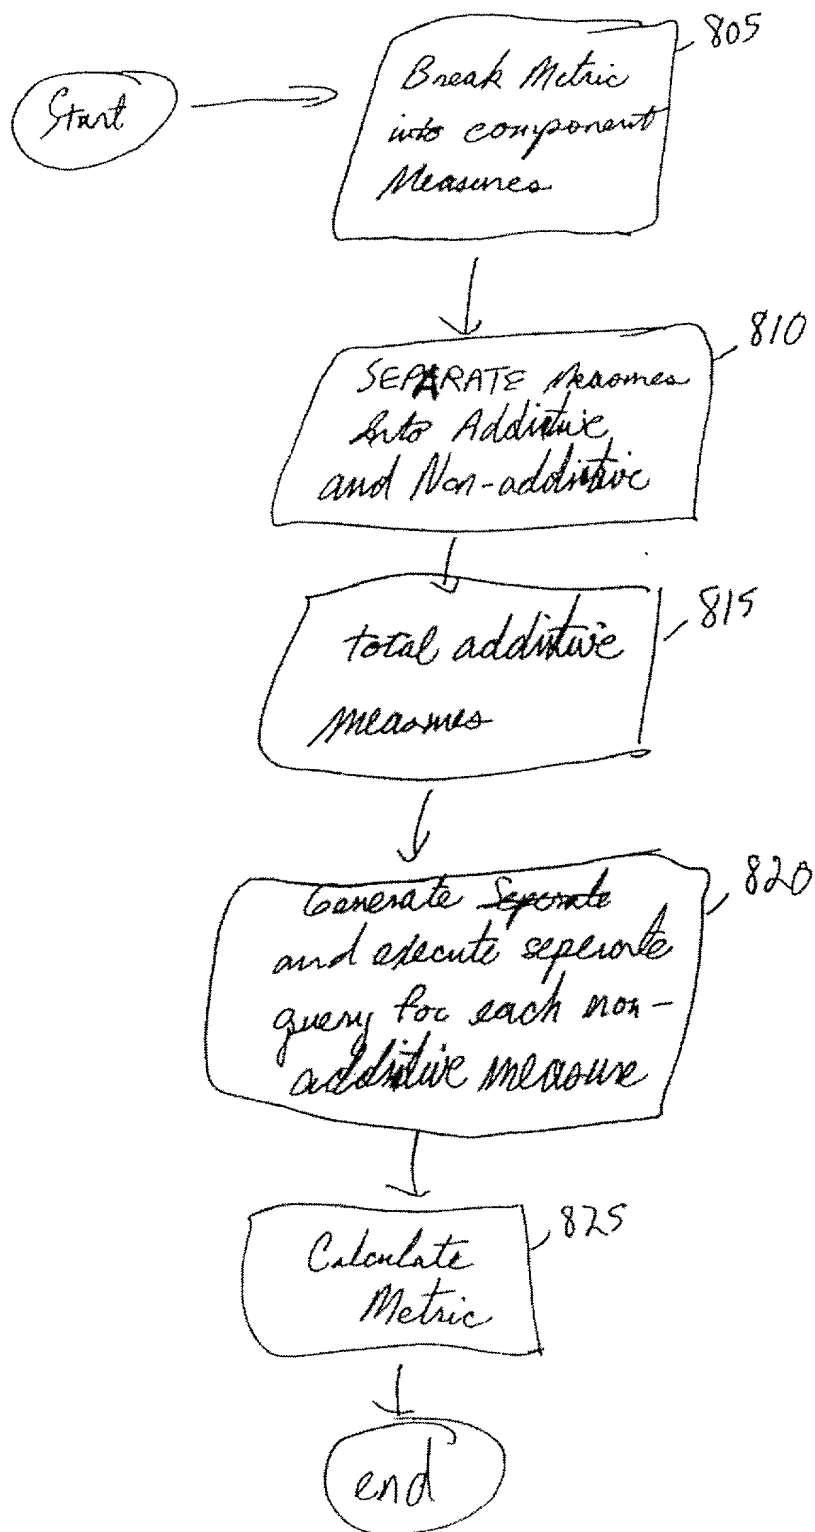 Start
805
Break Metric
into component
Measures
810
SEPARATE Measures
Into Addittive
and Non-additive
815
total additive
measures
820
Generate Seperate
and execute seperate
query for each non-
additive measure
825
Calculate
Metric
end